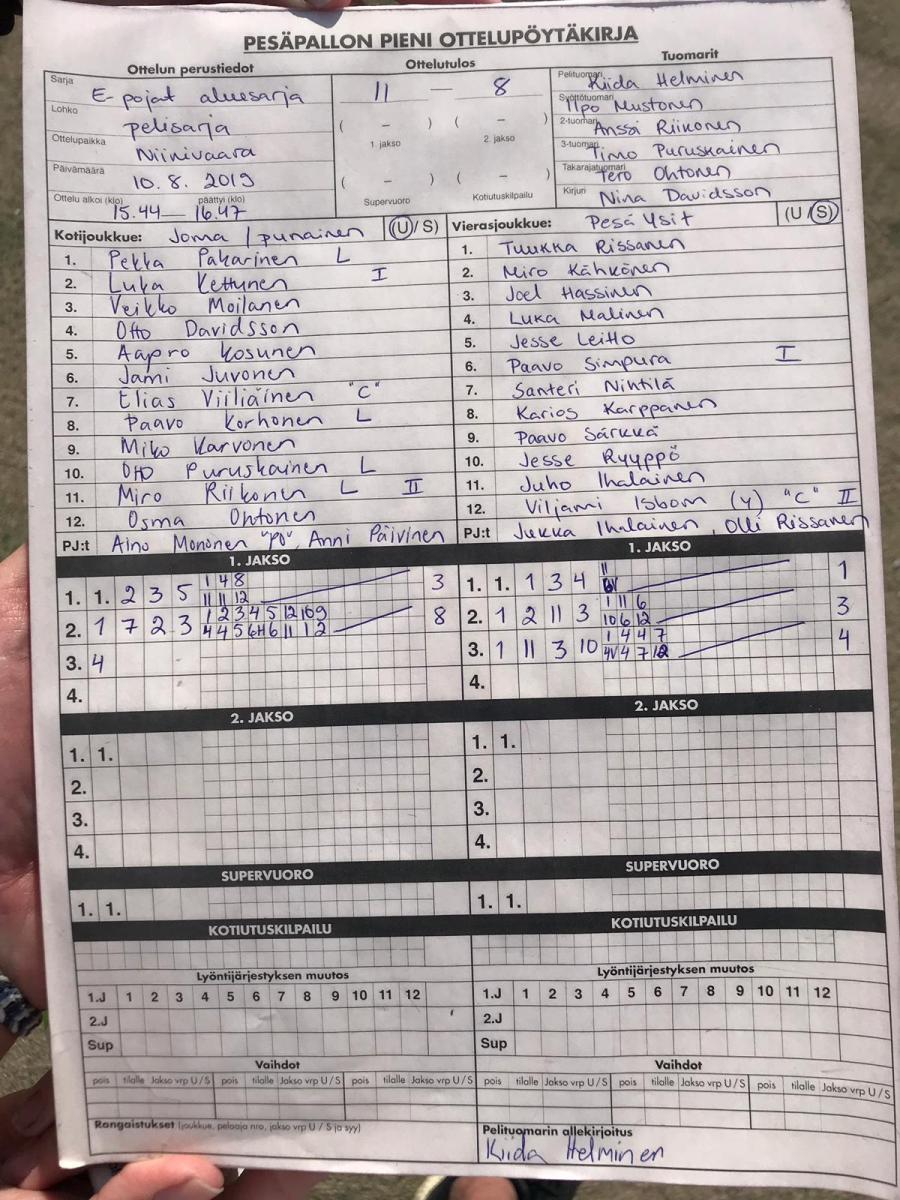 PESÄPALLON PIENI OTTELUPÖYTÄKIRJA
Ottelun perustiedot
Ottelutulos
Tuomarit
Sarja E-pojat aluesarja
Lohko pelisarja
Ottelupaikka Niinivaara
Päivämäärä 10.8.2019
Ottelu alkoi (klo) 15.44 — päättyi (klo) 16.47
11 — 8
( – ) ( – )
1. jakso 2. jakso
( – ) ( – )
Supervuoro Kotiutuskilpailu
Pelituomari Kiida Helminen
Syöttötuomari Ilpo Mustonen
2-tuomari Anssi Riikonen
3-tuomari Timo Puruskainen
Takarajatuomari Tero Ohtonen
Kirjuri Nina Davidsson
Kotijoukkue: Joma / punainen (U/S)
1. Pekka Pakarinen L
2. Luka Kettunen I
3. Veikko Moilanen
4. Otto Davidsson
5. Aapro Kosunen
6. Jami Juvonen
7. Elias Viiliäinen "C"
8. Paavo Korhonen L
9. Miko Karvonen
10. Otto Puruskainen L
11. Miro Riikonen L II
12. Osma Ohtonen
PJ:t Aino Mononen "PO", Anni Päivinen
Vierasjoukkue: Pesä Ysit (U/S)
1. Tuukka Rissanen
2. Miro Kähkönen
3. Joel Hassinen
4. Luka Malinen
5. Jesse Leitto
6. Paavo Simpura I
7. Santeri Nintilä
8. Karios Karppanen
9. Paavo Särkkä
10. Jesse Ryyppö
11. Juho Ihalainen
12. Viljami Isbom (y) "C" II
PJ:t Jukka Ihalainen, Olli Rissanen
1. JAKSO
1. 1. 2 3 5 1 4 8 3
11 11 12
2. 1 7 2 3 1 2 3 4 5 12 10 9 8
3. 4
4.
1. JAKSO
1. 1. 1 3 4 11 1
2. 1 2 11 3 1 11 6 3
10 6 12
3. 1 11 3 10 1 4 4 7 4
4.
2. JAKSO
1. 1.
2.
3.
4.
2. JAKSO
1. 1.
2.
3.
4.
SUPERVUORO
1. 1.
SUPERVUORO
1. 1.
KOTIUTUSKILPAILU
KOTIUTUSKILPAILU
Lyöntijärjestyksen muutos
1.J 1 2 3 4 5 6 7 8 9 10 11 12
2.J
Sup
Lyöntijärjestyksen muutos
1.J 1 2 3 4 5 6 7 8 9 10 11 12
2.J
Sup
Vaihdot
pois tilalle Jakso vrp U/S pois tilalle Jakso vrp U/S pois tilalle Jakso vrp U/S
Vaihdot
pois tilalle Jakso vrp U/S pois tilalle Jakso vrp U/S pois tilalle Jakso vrp U/S
Rangaistukset (joukkue, pelaaja nro, jakso vrp U / S ja syy)
Pelituomarin allekirjoitus
Kiida Helminen